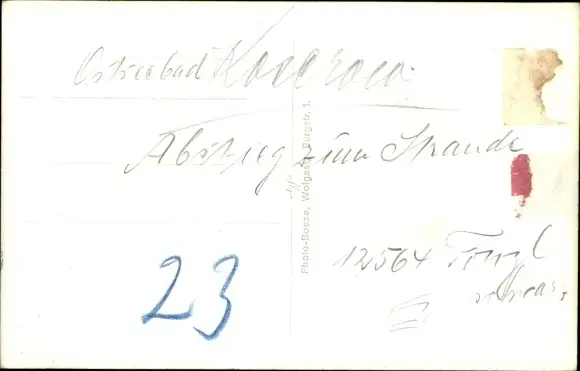 Ostseebad Koserow
Abstieg zum Strande
Photo-Bouse, Wolgast, Burgstr. 1.
12564
23